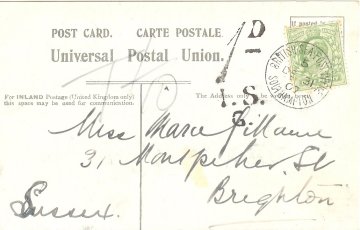 POST CARD. CARTE POSTALE.
Universal Postal Union.
If posted
1D
I.S.
For INLAND Postage (United Kingdom only)
this space may be used for communication.
The Address only to be
Miss Marie
31, Montpelier St
Brighton
Sussex.